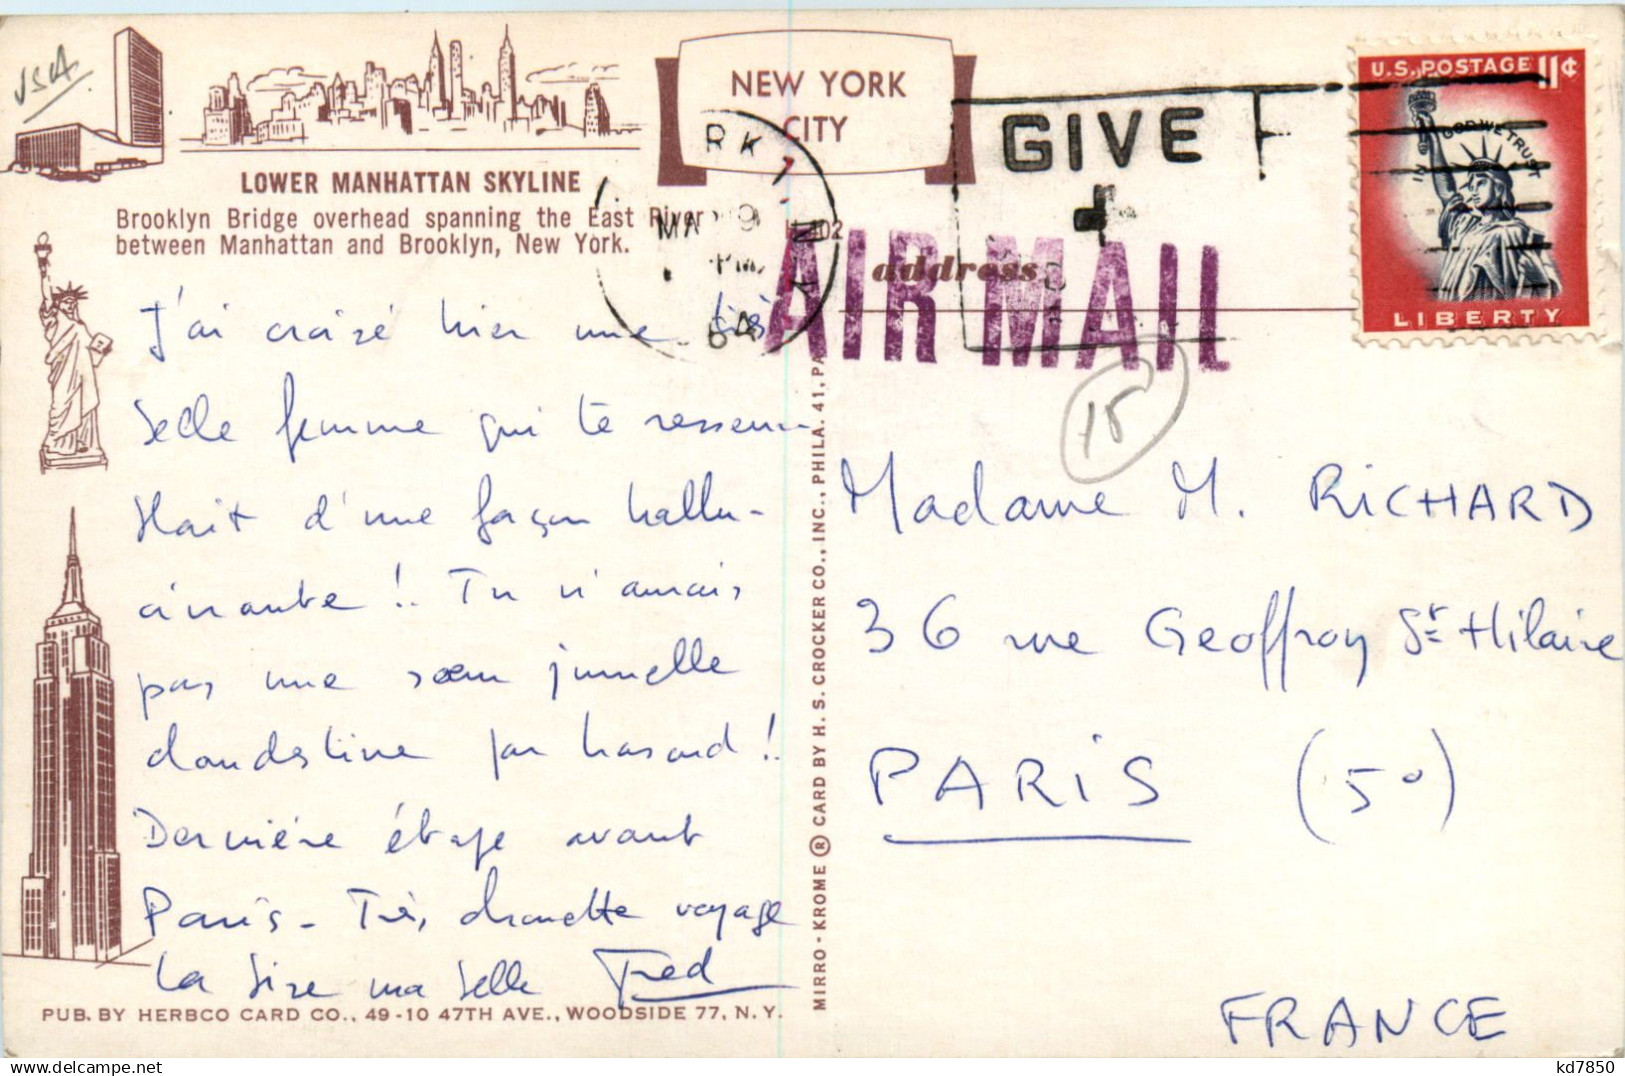 USA
NEW YORK
CITY
LOWER MANHATTAN SKYLINE
Brooklyn Bridge overhead spanning the East River
between Manhattan and Brooklyn, New York.
RK 1, N.Y.
9
PM
64
GIVE
U.S. POSTAGE 11¢
IN GOD WE TRUST
LIBERTY
address
AIR MAIL
15
J'ai croisé hier une très
belle femme qui te ressem-
blait d'une façon hallu-
cinante !! Tu n'aurais
pas une sœur jumelle
clandestine par hasard !
Dernière étape avant
Paris - Très chouette voyage
La bise ma belle Fred
Madame M. RICHARD
36 rue Geoffroy St Hilaire
PARIS (5°)
FRANCE
MIRRO-KROME ® CARD BY H. S. CROCKER CO., INC., PHILA. 41, PA.
PUB. BY HERBCO CARD CO., 49-10 47TH AVE., WOODSIDE 77, N.Y.
kd7850